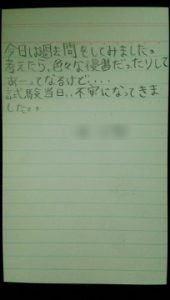 今日は過去問をしてみました。
考えたら、色々な複書だったりして
あーってなるけど....
試験当日..不安になってきま
した。。